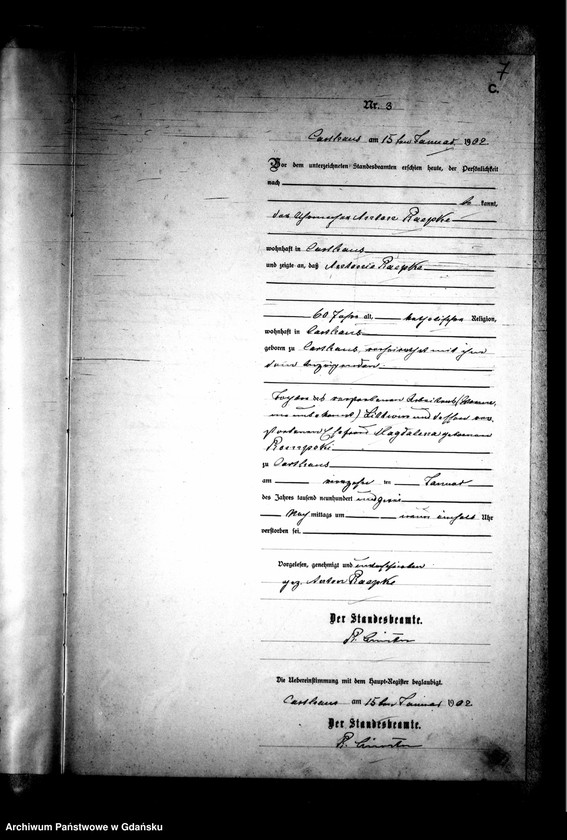 7
C.
Nr. 3
Carthaus am 15ten Januar 1902
Vor dem unterzeichneten Standesbeamten erschien heute, der Persönlichkeit
nach
be kannt,
der Anton Raepke
wohnhaft in Carthaus
und zeigte an, daß Antonie Raepke
60 Jahre alt, katholischer Religion,
wohnhaft in Carthaus
geboren zu Carthaus, verheirathet mit ihm
dem Anzeigenden
Tochter des verstorbenen Arbeiters (Vorname
unbekannt) und dessen ver-
storbenen Ehefrau Magdalena geborenen
Rompski
zu Carthaus
am vierzehn ten Januar
des Jahres tausend neunhundert und zwei
Nach mittags um neun einhalb Uhr
verstorben sei.
Vorgelesen, genehmigt und unterschrieben
gez. Anton Raepke
Der Standesbeamte.
Die Uebereinstimmung mit dem Haupt-Register beglaubigt.
Carthaus am 15ten Januar 1902
Der Standesbeamte.
Archiwum Państwowe w Gdańsku